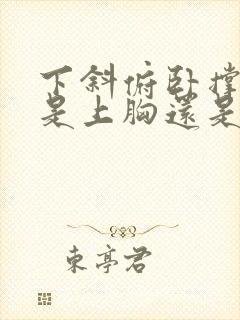 下斜俯卧撑
是上胸還是
東亭君